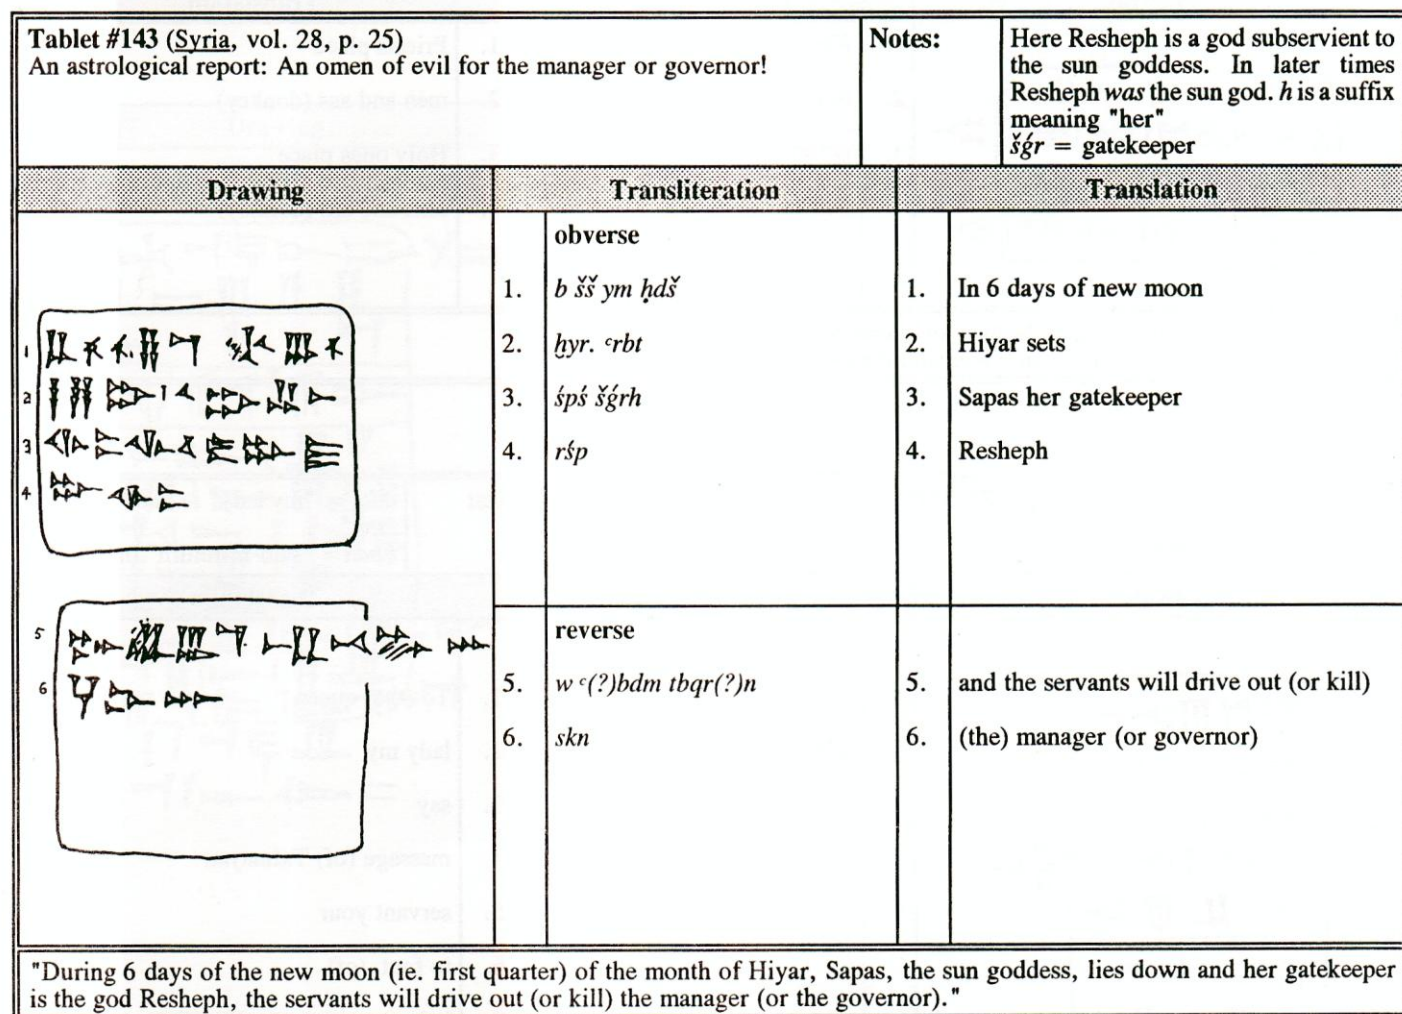 Tablet #143 (Syria, vol. 28, p. 25)
An astrological report: An omen of evil for the manager or governor!
Notes:
Here Resheph is a god subservient to
the sun goddess. In later times
Resheph was the sun god. h is a suffix
meaning "her"
šǵr = gatekeeper
Drawing
Transliteration
Translation
obverse
1. b šš ym ḥdš
2. ḫyr. ʿrbt
3. śpś šǵrh
4. rśp
1. In 6 days of new moon
2. Hiyar sets
3. Sapas her gatekeeper
4. Resheph
1
2
3
4
5
6
reverse
5. w ʿ(?)bdm tbqr(?)n
6. skn
5. and the servants will drive out (or kill)
6. (the) manager (or governor)
"During 6 days of the new moon (ie. first quarter) of the month of Hiyar, Sapas, the sun goddess, lies down and her gatekeeper
is the god Resheph, the servants will drive out (or kill) the manager (or the governor)."